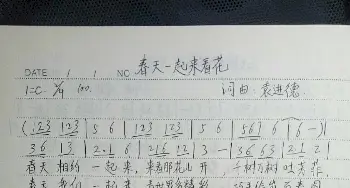 春天一起来看花
DATE / / NO
1=C 2/4 100. 词曲:袁进德
(123 123 | 5 6 | 123 123 | 5 6 | 561 6 | 6 - )
36 13 | 2·1 6 | 216 12 | 3 - | 36 63 | 21 2 |
春天 相约 一起 来, 来看那花儿 开, 千树万树 吐芙蓉,
春天 我们 一起 来